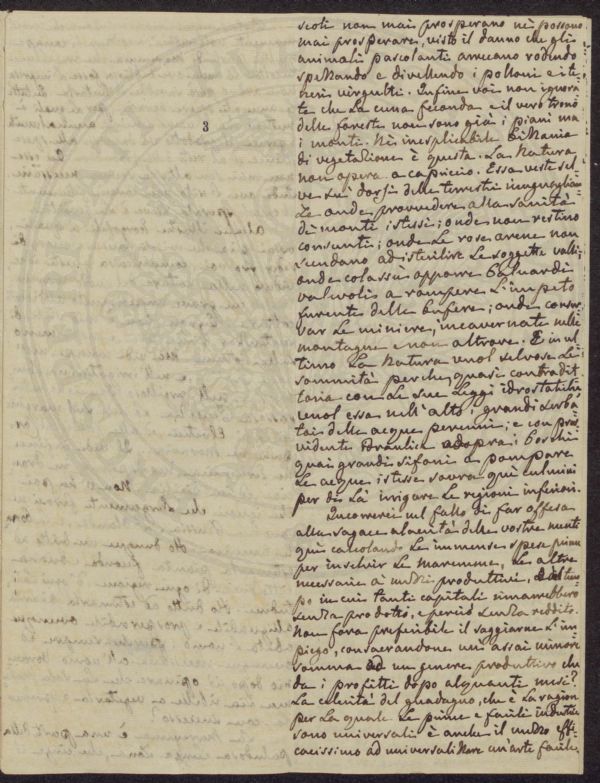 3
scoli non mai prosperano nè possono
mai prosperare, visto il danno che gli
animali pascolanti arrecano rodendo
spezzando e divellendo i polloni e i te-
neri virgulti. Infine voi non ignora-
te che la cuna feconda e il vero trono
delle foreste non sono già i piani ma
i monti. Nè inesplicabile bizzaria
di vegetazione è questa. La Natura
non opera a capriccio. Essa veste sel-
ve sui dorsi delle terrestri ineguaglian-
ze onde provvedere alla sanità
de' monti istessi; onde non restino
consunti; onde le rose arene non
scendano ad isterilire le soggette valli;
onde colassù apporre baluardi
valevoli a rompere l'impeto
furente delle bufere; onde conser-
var le miniere, incavernate nelle
montagne e non altrove. E in ul-
timo la Natura vuol selvose le
sommità perchè quasi contradit-
toria con le sue leggi idrostatiche
vuol essa nell'alto i grandi serba-
tai delle acque perenni; e con prov-
vidente Idraulica adopra i boschi
quai grandi sifoni a pompare
le acque istesse sovra quei culmini
per di là irrigare le regioni inferiori.
Incorrerei nel fallo di far offesa
alla sagace alacrità delle vostre menti
qui calcolando le immense spese prime
per inselvir le Maremme, le altre
necessarie ai mezzi produttivi, e il tem-
po in cui tanti capitali rimarrebbero
senza prodotto, e perciò senza reddito.
Non fora preferibile il saggiarne l'im-
piego, consacrandone una assai minore
somma ad un genere produttivo che
da i profitti dopo alquanti mesi?
La celerità del guadagno, che è la ragion
per la quale le prime e facili industrie
sono universali è anche il mezzo effi-
cacissimo ad universalizzare un'arte facile,